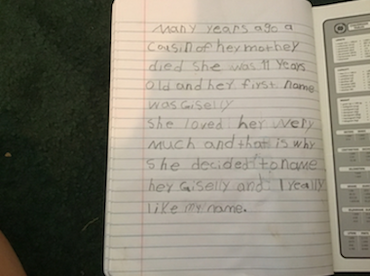 Many years ago a
cousin of her mother
died she was 11 years
old and her first name
was Giselly
she loved her wery
much and that is why
she decided to name
her Giselly and I really
like my name.